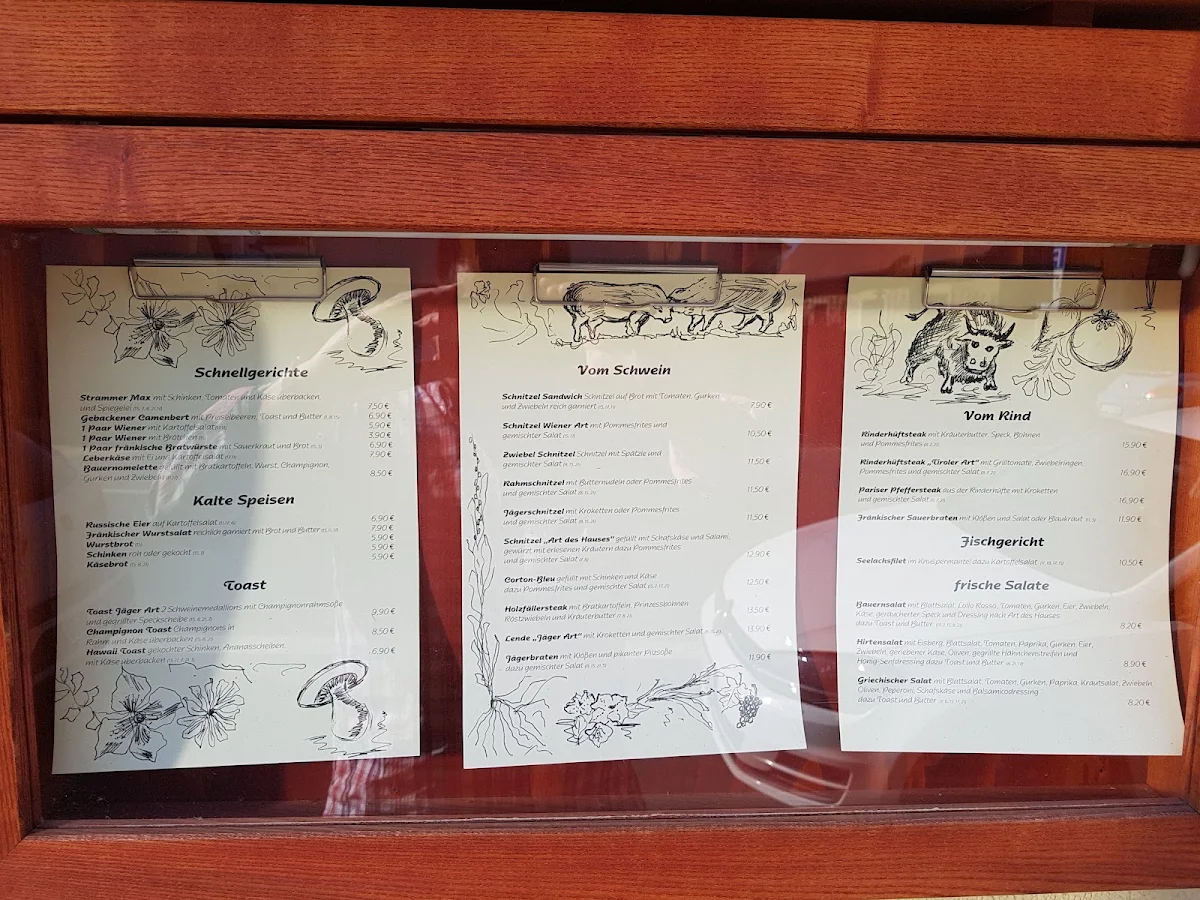 Schnellgerichte
Strammer Max mit Schinken, Tomaten und Käse überbacken,
und Spiegelei 7,50 €
Gebackener Camenbert mit Preiselbeeren, Toast und Butter 6,90 €
1 Paar Wiener mit Kartoffelsalat 5,90 €
1 Paar Wiener mit Brötchen 3,90 €
1 Paar fränkische Bratwürste mit Sauerkraut und Brot 6,90 €
Leberkäse mit Ei und Kartoffelsalat 7,90 €
Bauernomelette gefüllt mit Bratkartoffeln, Wurst, Champignon,
Gurken und Zwiebeln 8,50 €
Kalte Speisen
Russische Eier auf Kartoffelsalat 6,90 €
Fränkischer Wurstsalat reichlich garniert mit Brot und Butter 7,90 €
Wurstbrot 5,90 €
Schinken roh oder gekocht 5,90 €
Käsebrot 5,90 €
Toast
Toast Jäger Art 2 Schweinemedallions mit Champignonrahmsoße
und gegrillter Speckscheibe 9,90 €
Champignon Toast Champignons in
Rahm und Käse überbacken 8,50 €
Hawaii Toast gekochter Schinken, Ananasscheiben,
mit Käse überbacken 6,90 €
Vom Schwein
Schnitzel Sandwich Schnitzel auf Brot mit Tomaten, Gurken
und Zwiebeln reich garniert 7,90 €
Schnitzel Wiener Art mit Pommesfrites und
gemischter Salat 10,50 €
Zwiebel Schnitzel Schnitzel mit Spätzle und
gemischter Salat 11,50 €
Rahmschnitzel mit Butternudeln oder Pommesfrites
und gemischter Salat 11,50 €
Jägerschnitzel mit Kroketten oder Pommesfrites
und gemischter Salat 11,50 €
Schnitzel „Art des Hauses" gefüllt mit Schafskäse und Salami,
gewürzt mit erlesenen Kräutern dazu Pommesfrites
und gemischter Salat 12,90 €
Corton-Bleu gefüllt mit Schinken und Käse
dazu Pommesfrites und gemischter Salat 12,50 €
Holzfällersteak mit Bratkartoffeln, Prinzessbohnen
Röstzwiebeln und Kräuterbutter 13,50 €
Lende „Jäger Art" mit Kroketten und gemischter Salat 13,90 €
Jägerbraten mit Klößen und pikanter Pilzsoße
dazu gemischter Salat 11,90 €
Vom Rind
Rinderhüftsteak mit Kräuterbutter, Speck, Bohnen
und Pommesfrites 15,90 €
Rinderhüftsteak „Tiroler Art" mit Grilltomate, Zwiebelringen,
Pommesfrites und gemischter Salat 16,90 €
Pariser Pfeffersteak aus der Rinderhüfte mit Kroketten
und gemischter Salat 16,90 €
Fränkischer Sauerbraten mit Klößen und Salat oder Blaukraut 11,90 €
Fischgericht
Seelachsfilet im Knuspermantel dazu Kartoffelsalat 10,50 €
frische Salate
Bauernsalat mit Blattsalat, Lollo Rosso, Tomaten, Gurken, Eier, Zwiebeln,
Käse, geräucherter Speck und Dressing nach Art des Hauses
dazu Toast und Butter 8,20 €
Hirtensalat mit Eisberg, Blattsalat, Tomaten, Paprika, Gurken, Eier,
Zwiebeln, geriebener Käse, Oliven, gegrillte Hähnchenstreifen und
Honig-Senfdressing dazu Toast und Butter 8,90 €
Griechischer Salat mit Blattsalat, Tomaten, Gurken, Paprika, Krautsalat, Zwiebeln
Oliven, Peperoni, Schafskäse und Balsamicodressing
dazu Toast und Butter 8,20 €